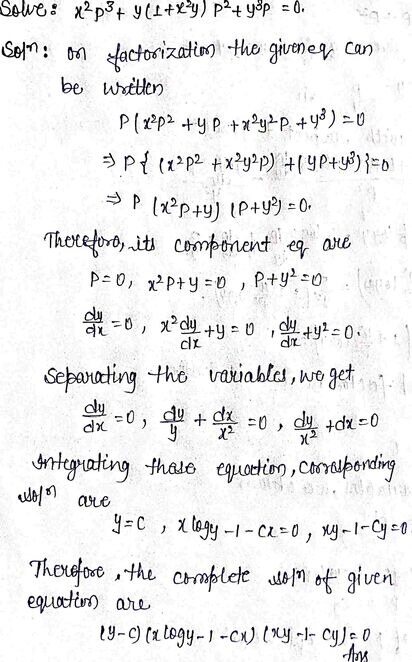 Solve: x²p³+ y(1+x²y) p²+y³p = 0.
Solⁿ: on factorization the given eq can
be written
P(x²p² + yp + x²y²p + y³) = 0
⇒ P{ (x²p² + x²y²p) +(yp+y³)}=0
⇒ P (x²p+y) (p+y²) = 0.
Therefore, its component eq are
P=0, x²p+y=0 , p+y²=0
dy/dx = 0, x² dy/dx + y = 0 , dy/dx + y² = 0.
Separating the variables, we get
dy/dx = 0, dy/y + dx/x² = 0 , dy/x² + dx = 0
Integrating these equation, corrosponding
solⁿ are
y=c , x logy -1 - cx = 0 , xy -1 - cy = 0
Therefore, the complete solⁿ of given
equation are
(y-c) (x logy -1 - cx) (xy -1- cy) = 0
Ans